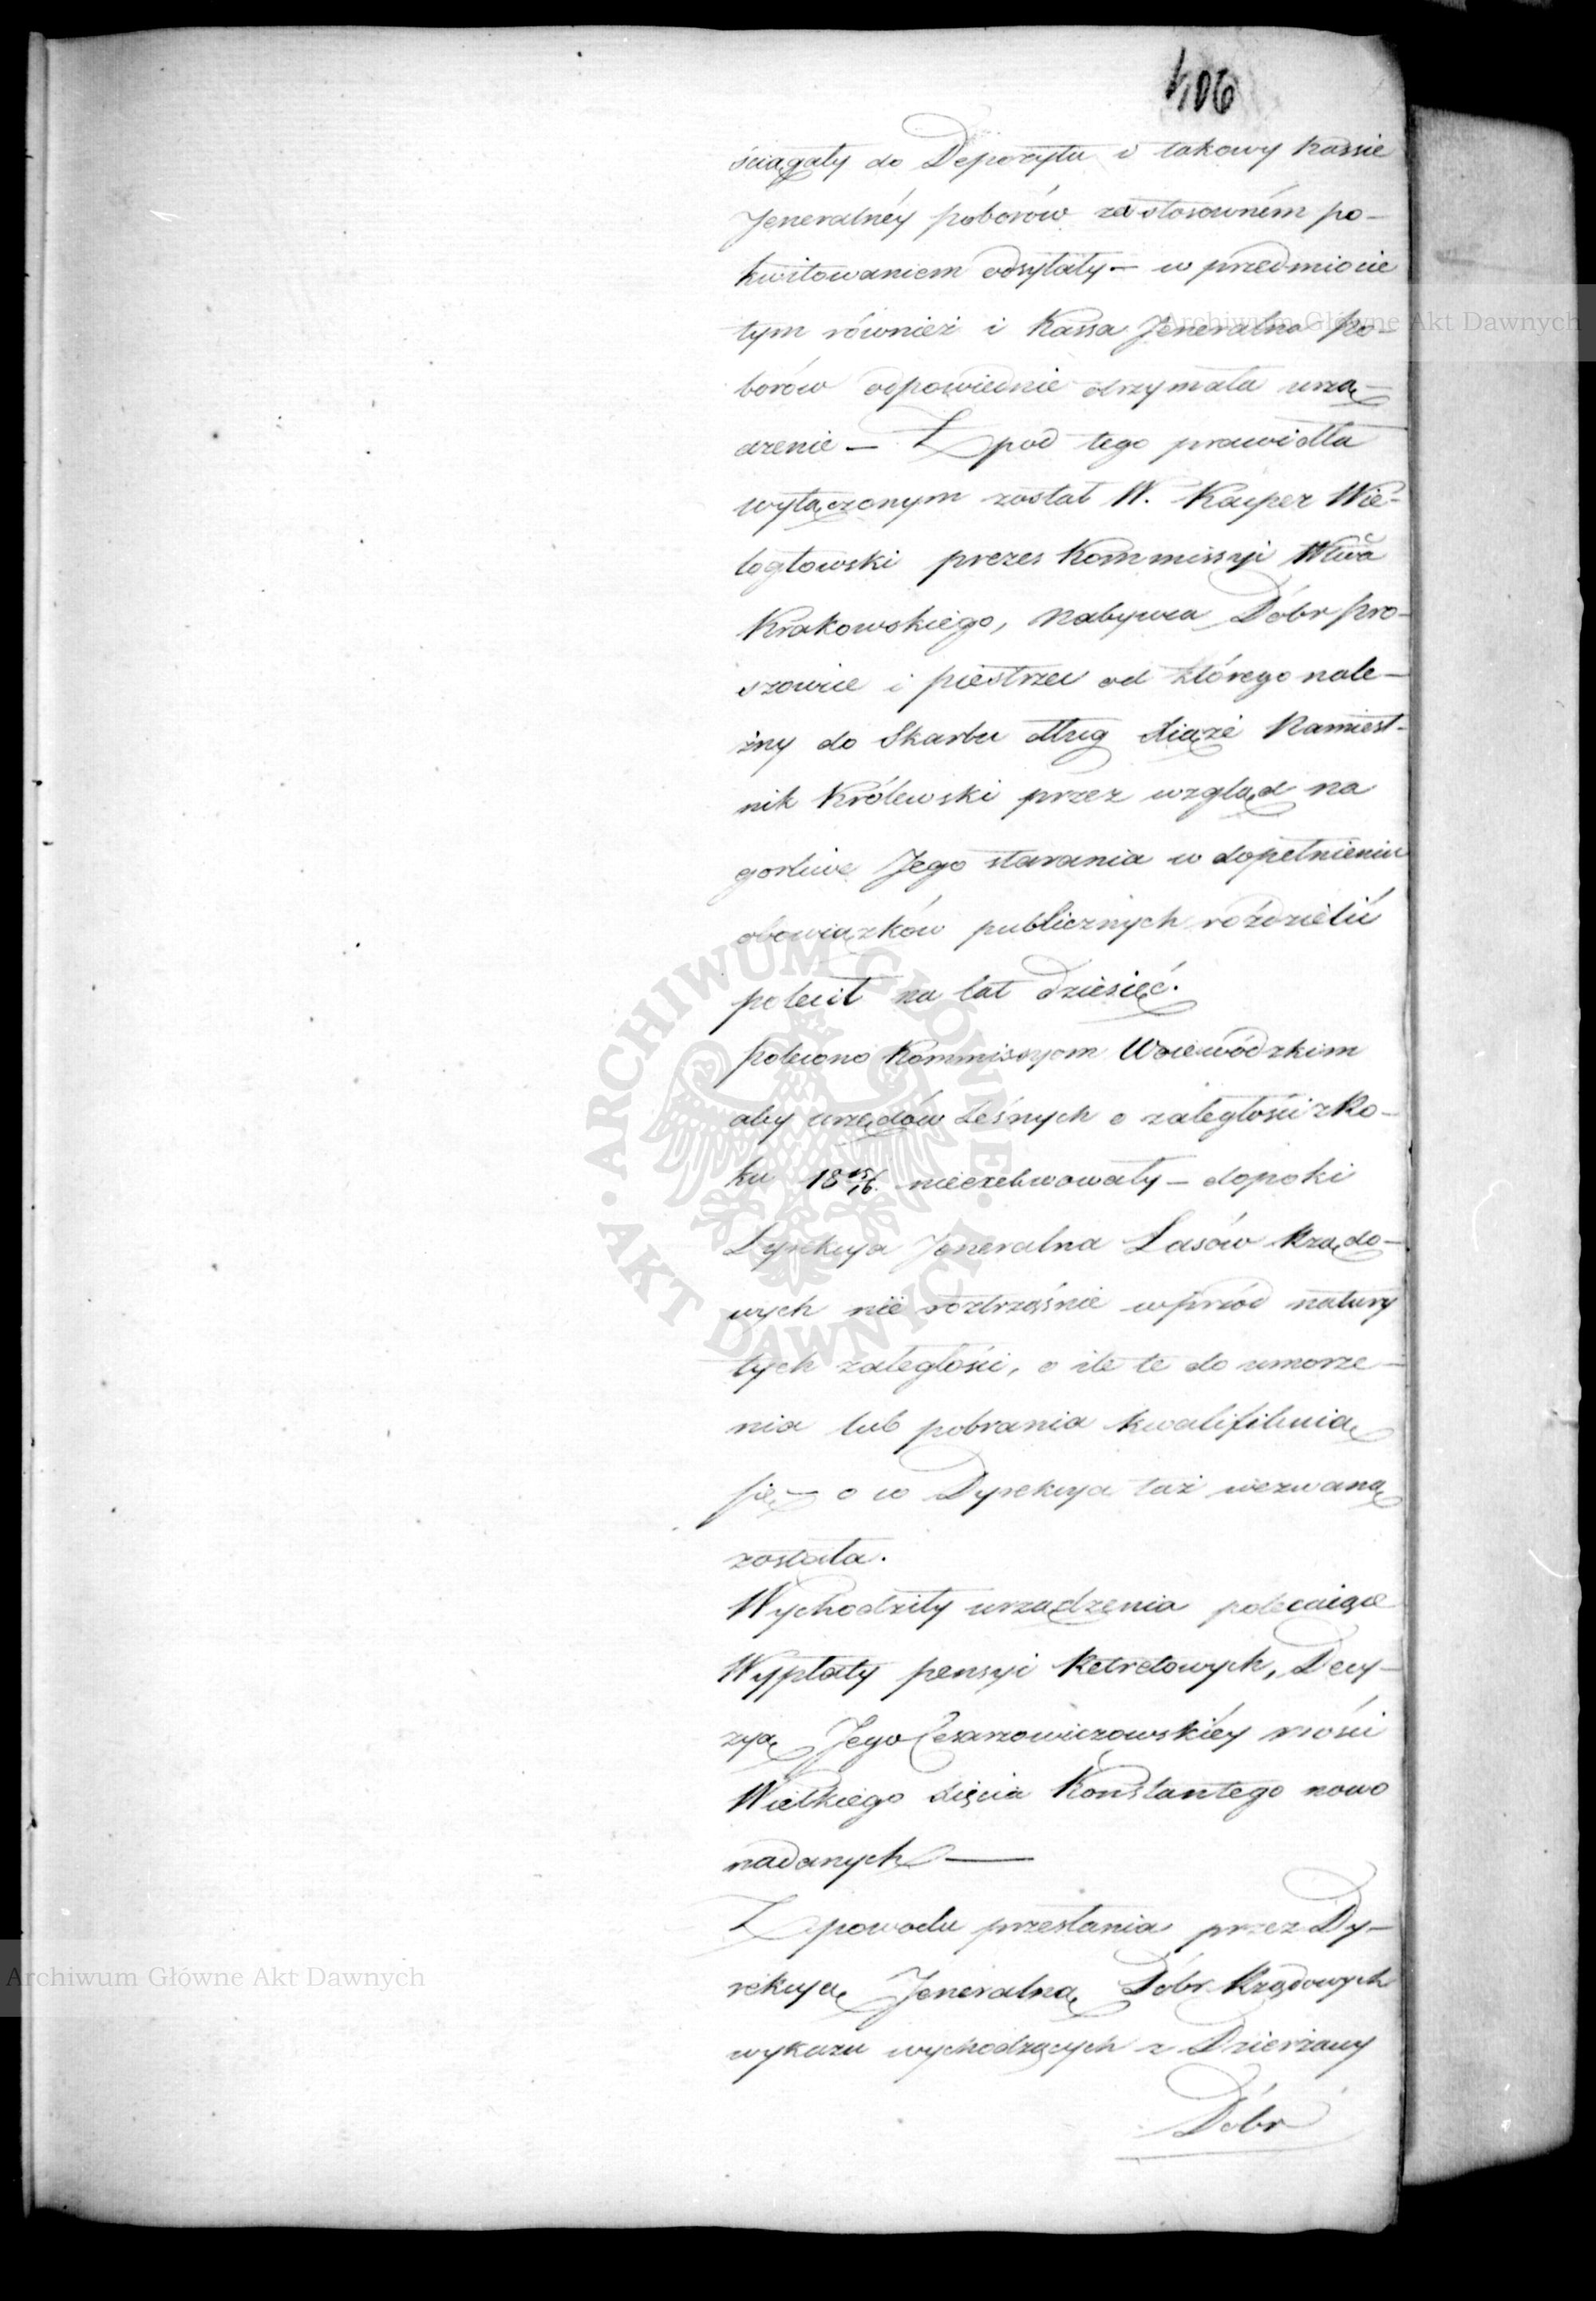 406
ściągały do Depozytu i takowy Kassie
Jeneralnéy poborów za stosowném po-
kwitowaniem odsyłały — w przedmiocie
tym również i Kassa Jeneralna Po-
borów odpowiednie otrzymała urzą-
dzenie — Z pod tego prawidła
wyłączonym został W. Kacper Wie-
logłowski prezes Kommissyi Wtwa
Krakowskiego, Nabywca Dóbr Pro-
szowice i piestrzec od którego nale-
żny do Skarbu dług Xiąże Namiest-
nik Królewski przez wzgląd na
gorliwe Jego starania w dopełnieniu
obowiązków publicznych roździelić
polecił na lat dziesięć.
polecono Kommissyom Woiewódzkim
aby urzędów Leśnych o zaległości z Ro-
ku 18 15/16. nieexekwowały — dopoki
Dyrekcya Jeneralna Lasów Rządo-
wych nie roztrząśnie wprzód natury
tych zaległości, o ile te do umorze-
nia lub pobrania kwalifikuią
się — o co Dyrekcya taż wezwaną
została.
Wychodziły urządzenia polecaiące
Wypłaty pensyi Retretowych, Decy-
zyą Jego Cesarzowiczowskiéy mości
Wielkiego Xięcia Konstantego nowo
nadanych —
Z powodu przesłania przez Dy-
rekcyą Jeneralną Dóbr Rządowych
wykazu wychodzących z Dzierżawy
Dóbr
Archiwum Główne Akt Dawnych
Archiwum Główne Akt Dawnych
ARCHIWUM GŁÓWNE · AKT DAWNYCH ·